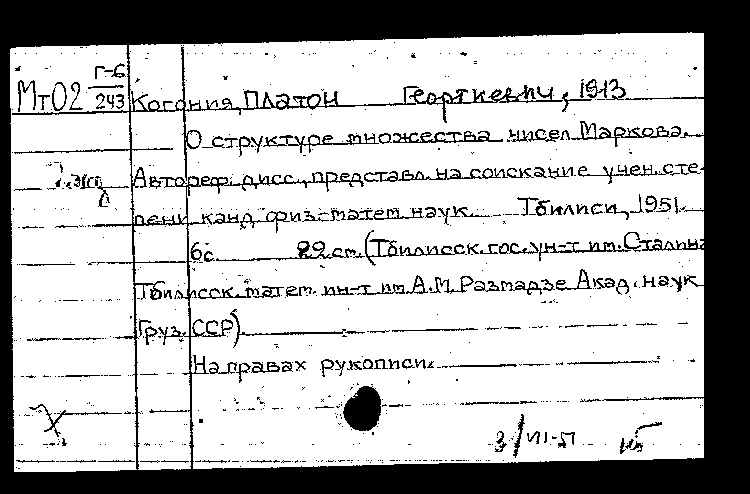 Мт02 Г-6/243
Когония, Платон Георгиевич, 1913
О структуре множества чисел Маркова.
Автореф. дисс., представл. на соискание учен. сте-
пени канд. физ.-матем. наук. Тбилиси, 1951.
6с. 22 см. (Тбилисск. гос. ун-т им. Сталина
Тбилисск. матем. ин-т им. А.М. Размадзе Акад. наук
Груз. ССР).
На правах рукописи.
3/VII-51